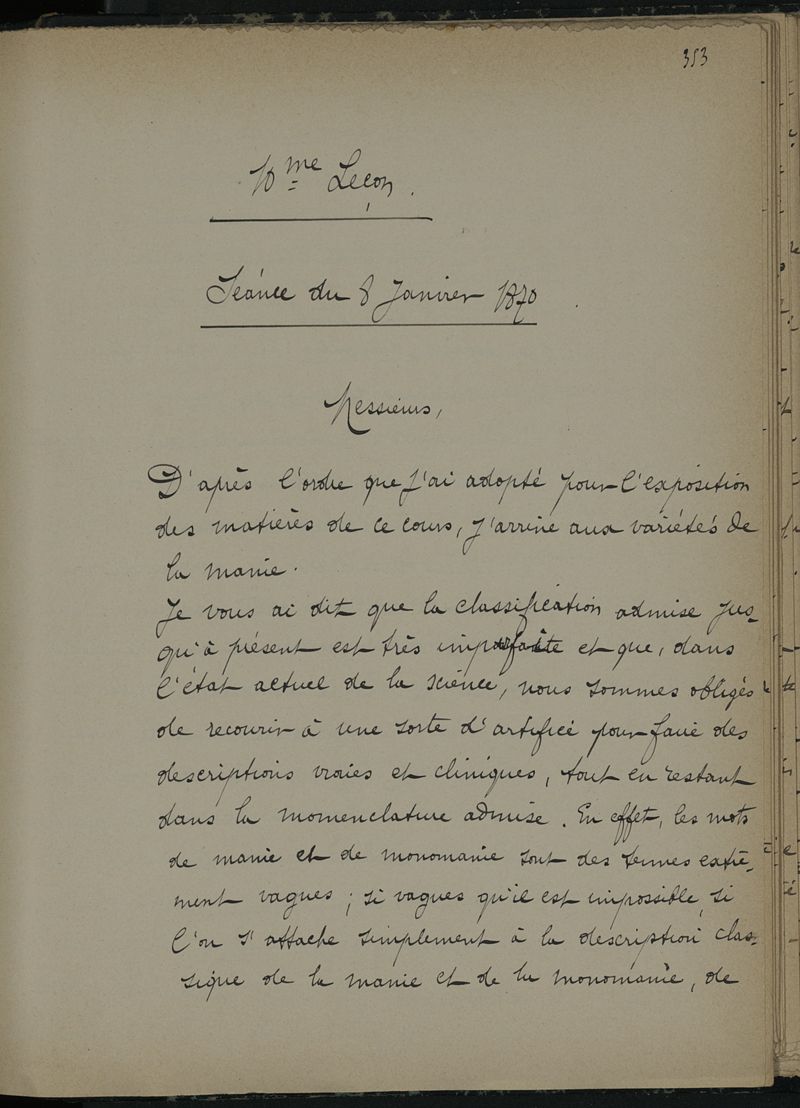 353
10me Leçon.
Séance du 8 Janvier 1870.
Messieurs,
D'après l'ordre que j'ai adopté pour l'exposition
des matières de ce cours, j'arrive aux variétés de
la manie.
Je vous ai dit que la classification admise jus-
qu'à présent est très imparfaite et que, dans
l'état actuel de la science, nous sommes obligés
de recourir à une sorte d'artifice pour faire des
descriptions vraies et cliniques, tout en restant
dans la nomenclature admise. En effet, les mots
de manie et de monomanie sont des termes extrê-
ment vagues ; si vagues qu'il est impossible, si
l'on s'attache simplement à la description clas-
sique de la manie et de la monomanie, de